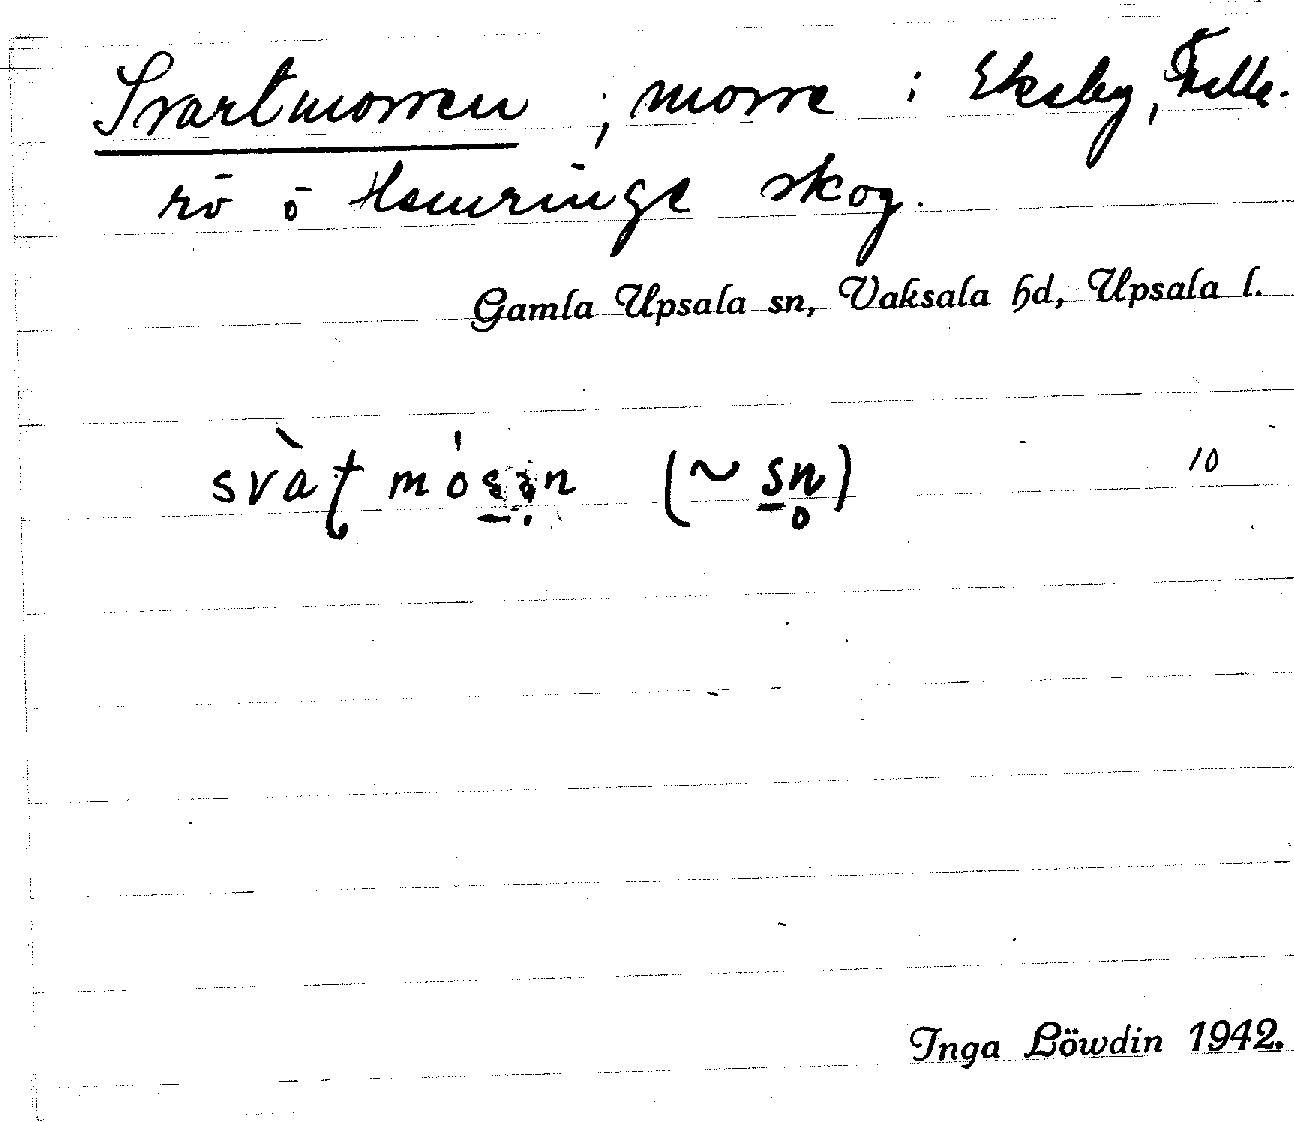 Svartmossen, mosse i Ekeby, Fulle-
rö o Hämringe skog.
Gamla Upsala sn, Vaksala hd, Upsala l.
svàʈ mósən (~ sn̥) 10
Inga Löwdin 1942.